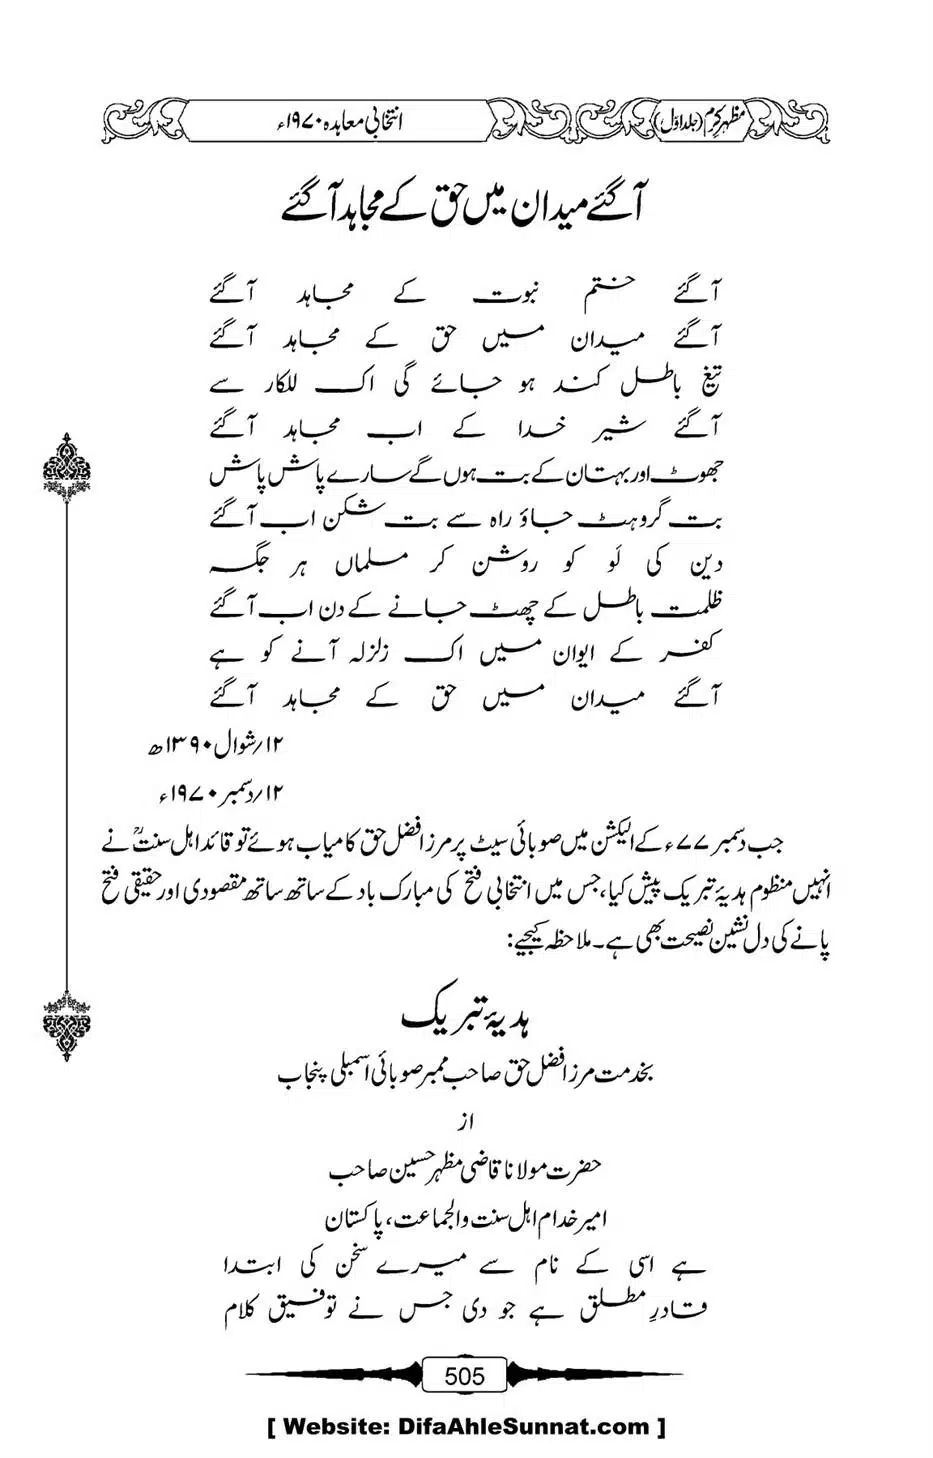 مظہرِ کرم (جلد اوّل)
انتخابی معاہدہ ۱۹۷۰ء
آگئے میدان میں حق کے مجاہد آگئے
آگئے ختم نبوت کے مجاہد آگئے
آگئے میدان میں حق کے مجاہد آگئے
تیغ باطل کند ہو جائے گی اک للکار سے
آگئے شیر خدا کے اب مجاہد آگئے
جھوٹ اور بہتان کے بت ہوں گے سارے پاش پاش
بت گرو ہٹ جاؤ راہ سے بت شکن اب آگئے
دین کی لَو کو روشن کر مسلماں ہر جگہ
ظلمت باطل کے چھٹ جانے کے دن اب آگئے
کفر کے ایوان میں اک زلزلہ آنے کو ہے
آگئے میدان میں حق کے مجاہد آگئے
۱۲/شوال ۱۳۹۰ھ
۱۲/دسمبر ۱۹۷۰ء
جب دسمبر ۷۷ء کے الیکشن میں صوبائی سیٹ پر مرزا فضل حق کامیاب ہوئے تو قائد اہل سنتؒ نے
انہیں منظوم ہدیۂ تبریک پیش کیا، جس میں انتخابی فتح کی مبارک باد کے ساتھ ساتھ مقصودی اور حقیقی فتح
پانے کی دل نشین نصیحت بھی ہے۔ ملاحظہ کیجیے:
ہدیۂ تبریک
بخدمت مرزا فضل حق صاحب ممبر صوبائی اسمبلی پنجاب
از
حضرت مولانا قاضی مظہر حسین صاحب
امیر خدام اہل سنت والجماعت، پاکستان
ہے اسی کے نام سے میرے سخن کی ابتدا
قادرِ مطلق ہے جو دی جس نے توفیق کلام
505
[ Website: DifaAhleSunnat.com ]